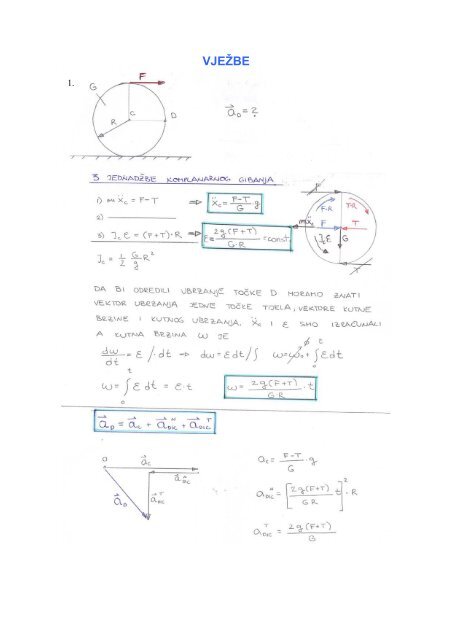 VJEŽBE
1.
F
G
C
R
D
a⃗_D = ?
3 JEDNADŽBE KOMPLANARNOG GIBANJA
1) mẍ_c = F-T ⇒ ẍ_c = (F-T)/G g
2)
3) J_c ε = (F+T)·R ⇒ ε = 2g(F+T)/(G·R) = const.
J_c = 1/2 G/g R²
F·R T·R
mẍ_c F T
J_c ε G
DA BI ODREDILI UBRZANJE TOČKE D MORAMO ZNATI
VEKTOR UBRZANJA JEDNE TOČKE TIJELA, VEKTORE KUTNE
BRZINE I KUTNOG UBRZANJA. ẍ_c I ε SMO IZRAČUNALI
A KUTNA BRZINA ω JE
dω/dt = ε /·dt ⇒ dω = εdt /∫ ω = ω₀ + ∫₀ᵗ εdt
ω = ∫₀ᵗ ε dt = ε·t ω = 2g(F+T)/(G·R) · t
a⃗_D = a⃗_c + a⃗_D/C^N + a⃗_D/C^T
a⃗_c
a⃗_D/C^N
a⃗_D a⃗_D/C^T
a_c = (F-T)/G · g
a_D/C^N = [2g(F+T)/(GR) t]² · R
a_D/C^T = 2g(F+T)/G